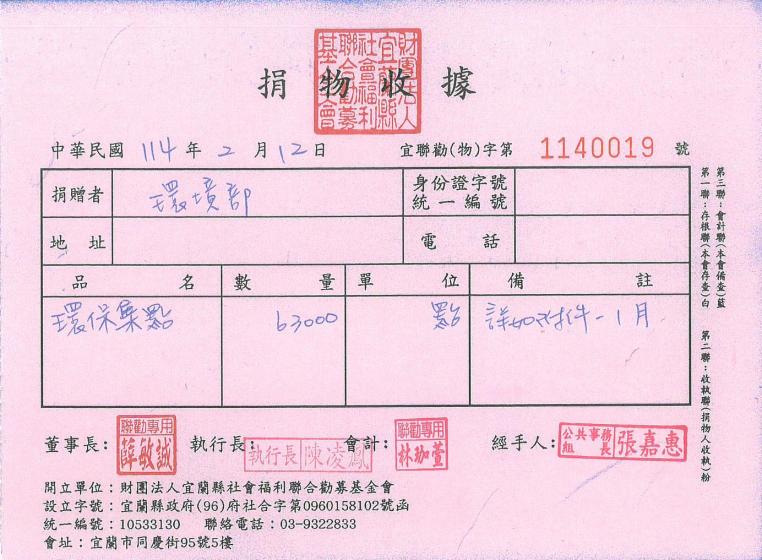 捐物收據
財團法人宜蘭縣社會福利聯合勸募基金會
中華民國 114 年 2 月 12 日 宜聯勸(物)字第 1140019 號
捐贈者 環境部 身份證字號 統一編號
地址 電話
品名 數量 單位 備註
環保集點 63000 點 詳如附件-1月
董事長: 聯勸專用 薛敏誠 執行長: 執行長 陳凌鳳 會計: 聯勸專用 林珈萱 經手人: 公共事務組長 張嘉惠
開立單位:財團法人宜蘭縣社會福利聯合勸募基金會
設立字號:宜蘭縣政府(96)府社合字第0960158102號函
統一編號:10533130 聯絡電話:03-9322833
會址:宜蘭市同慶街95號5樓
第三聯:會計聯(本會備查)藍
第一聯:存根聯(本會存查)白 第二聯:收執聯(捐物人收執)粉